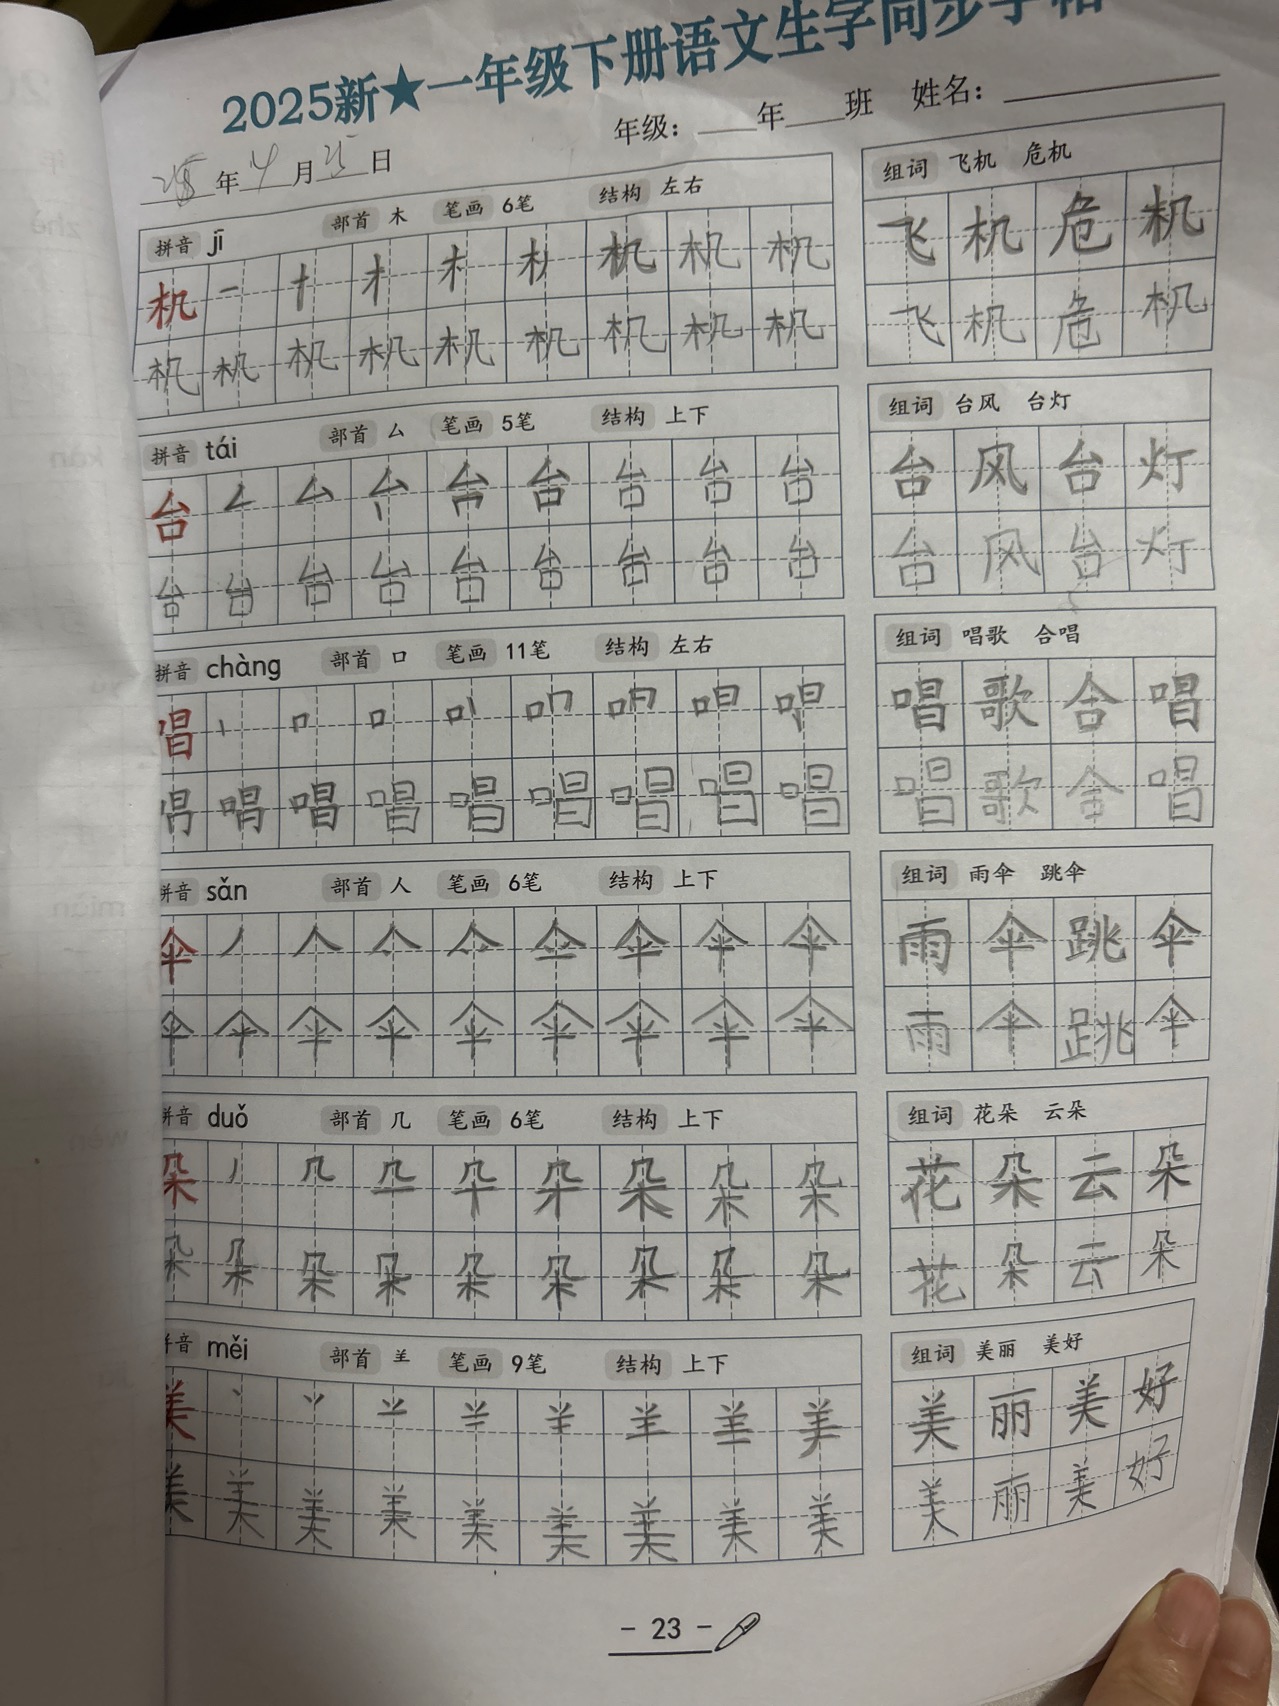 2025新★一年级下册语文生字同步字帖
年级：____年____班 姓名：
年4月25日
拼音 jī 部首 木 笔画 6笔 结构 左右
组词 飞机 危机
机 机 机 机
飞 机 危 机
机 机 机 机 机 机 机 机 机
飞 机 危 机
拼音 tái 部首 厶 笔画 5笔 结构 上下
组词 台风 台灯
台 台 台 台 台
台 风 台 灯
台 台 台 台 台 台 台 台 台
台 风 台 灯
拼音 chàng 部首 口 笔画 11笔 结构 左右
组词 唱歌 合唱
唱
唱 歌 合 唱
唱 唱 唱 唱 唱 唱 唱
唱 歌 合 唱
拼音 sǎn 部首 人 笔画 6笔 结构 上下
组词 雨伞 跳伞
伞 伞 伞 伞
雨 伞 跳 伞
伞 伞 伞 伞 伞 伞 伞 伞 伞
雨 伞 跳 伞
拼音 duǒ 部首 几 笔画 6笔 结构 上下
组词 花朵 云朵
朵 朵 朵 朵
花 朵 云 朵
朵 朵 朵 朵 朵 朵 朵 朵 朵
花 朵 云 朵
拼音 měi 部首 𦍌 笔画 9笔 结构 上下
组词 美丽 美好
美 美
美 丽 美 好
美 美 美 美 美 美 美 美 美
美 丽 美 好
- 23 -